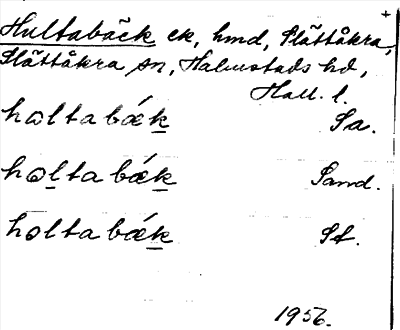 +
Hultabäck ck, hmd, Slättåkra,
Slättåkra sn, Halmstads hd,
Hall. l.
hⱺltabǽk Sa.
hⱺltabǽk Sand.
hⱺltabǽk St.
1956.